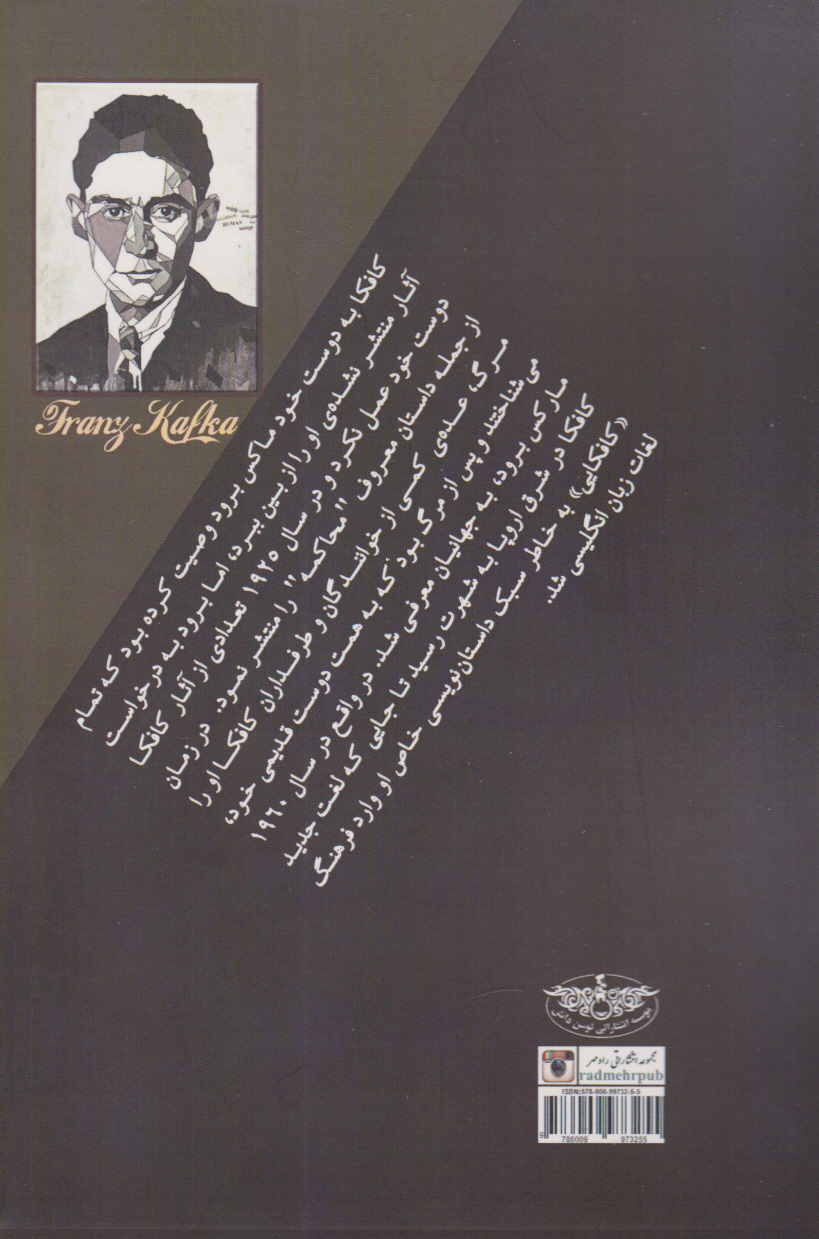 Franz Kafka
کافکا به دوست خود ماکس برود وصیت کرده بود که تمام
آثار منتشر نشده‌ی او را از بین ببرد، اما برود به درخواست
دوست خود عمل نکرد و در سال ۱۹۲۵ تعدادی از آثار کافکا
از جمله داستان معروف "محاکمه" را منتشر نمود. در زمان
مرگ، عده‌ی کمی از خوانندگان و طرفداران کافکا او را
می شناختند و پس از مرگ بود که به همت دوست قدیمی خود،
مارکس برود، به جهانیان معرفی شد. در واقع در سال ۱۹۶۰
کافکا در شرق اروپا به شهرت رسید تا جایی که لغت جدید
«کافکایی» به خاطر سبک داستان‌نویسی خاص او وارد فرهنگ
لغات زبان انگلیسی شد.
موسسه انتشاراتی توسن دانش
مجموعه انتشاراتی رادمهر
radmehrpub
ISBN:978-600-99732-5-5
9 786009 973255